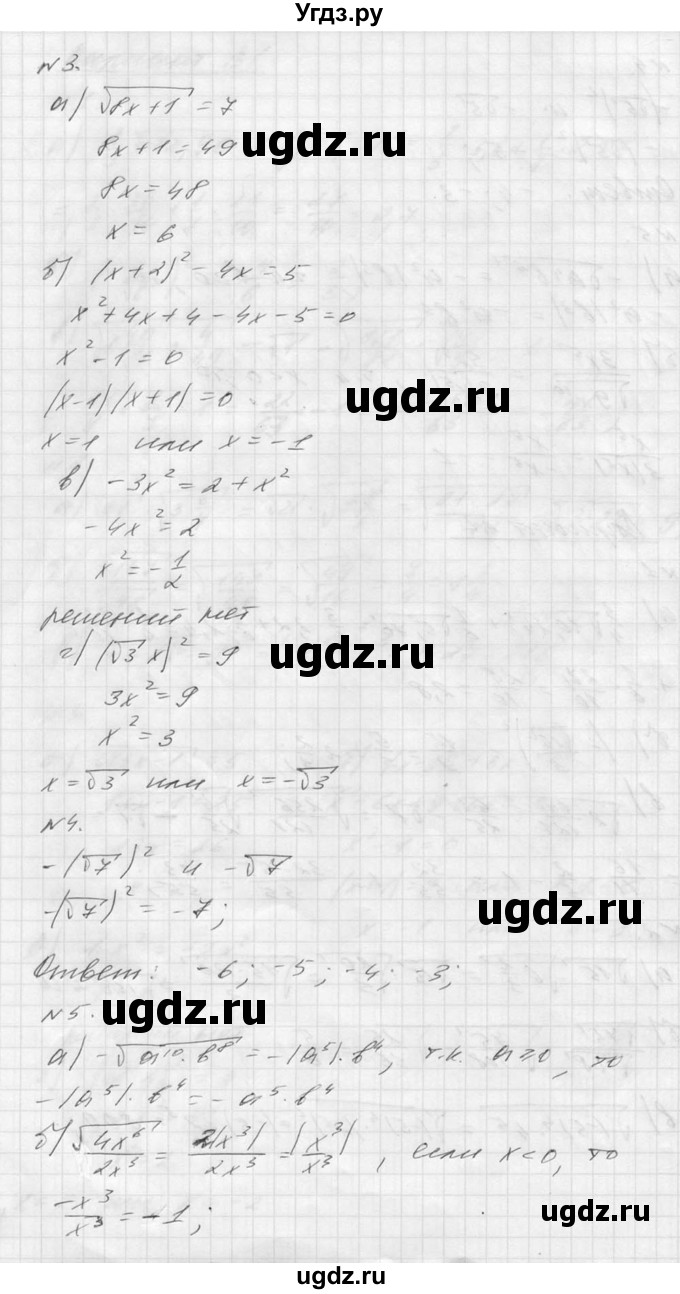 Угдз.ру
№3.
а) √(8x+1) = 7
8x+1 = 49
ugdz.ru
8x = 48
x = 6
б) (x+2)² - 4x = 5
x² + 4x + 4 - 4x - 5 = 0
x² - 1 = 0
(x-1)(x+1) = 0
ugdz.ru
x = 1 или x = -1
в) -3x² = 2 + x²
-4x² = 2
x² = -1/2
решений нет
г) (√3 x)² = 9
ugdz.ru
3x² = 9
x² = 3
x = √3 или x = -√3
№4.
-(√7)² и -√7
-(√7)² = -7;
ugdz.ru
Ответ: -6; -5; -4; -3;
№5.
ugdz.ru
а) -√(a¹⁰·b⁸) = -|a⁵|·b⁴, т.к. a≥0, то
-|a⁵|·b⁴ = -a⁵·b⁴
б) √(4x⁶)/2x³ = 2|x³|/2x³ = |x³|/x³, если x<0, то
-x³/x³ = -1;
ugdz.ru
ugdz.ru